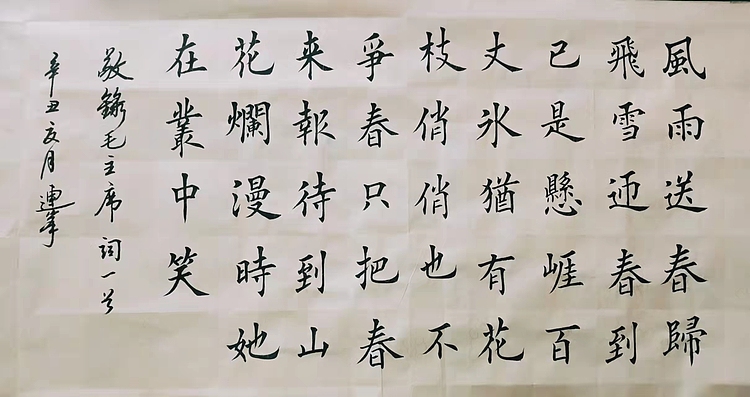 風雨送春歸
飛雪迎春到
已是懸崕百
丈氷猶有花
枝俏俏也不
爭春只把春
来報待到山
花爛漫時她
在叢中笑
敬錄毛主席詞一首
辛丑亥月連峯